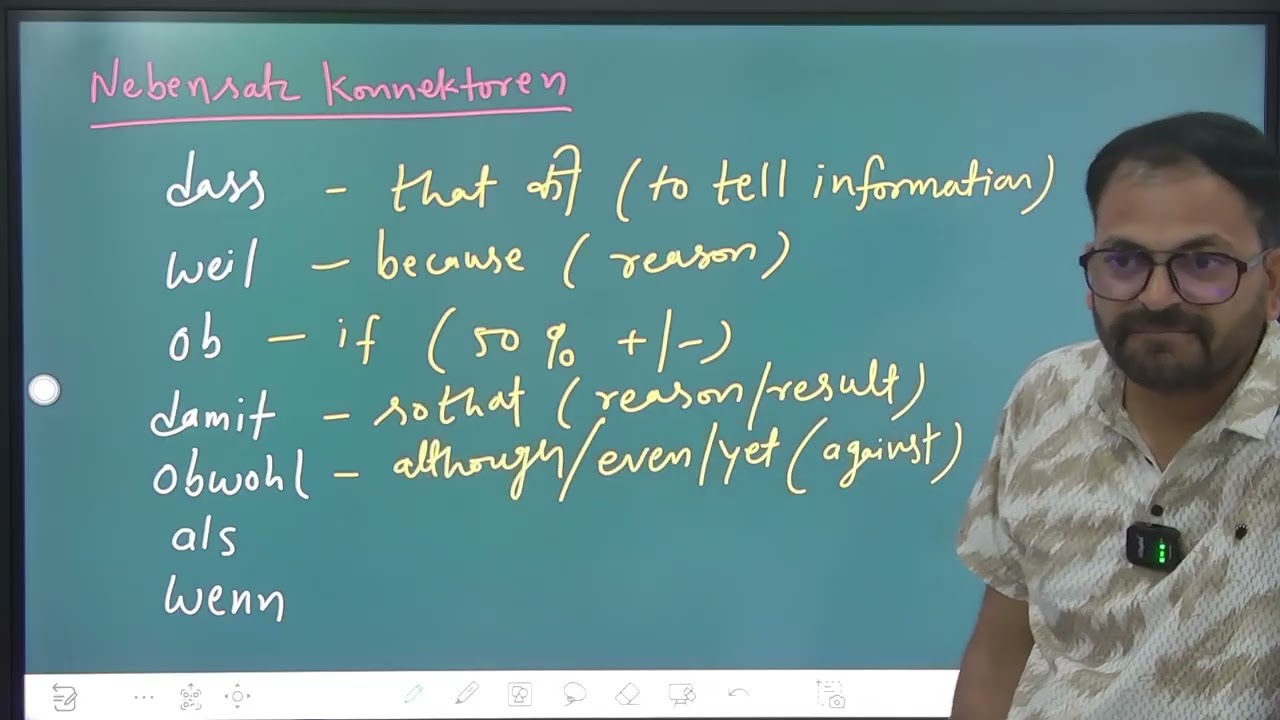 Nebensatz Konnektoren
dass - that की (to tell information)
weil - because (reason)
ob - if (50% +/-)
damit - so that (reason/result)
obwohl - although/even/yet (against)
als
wenn